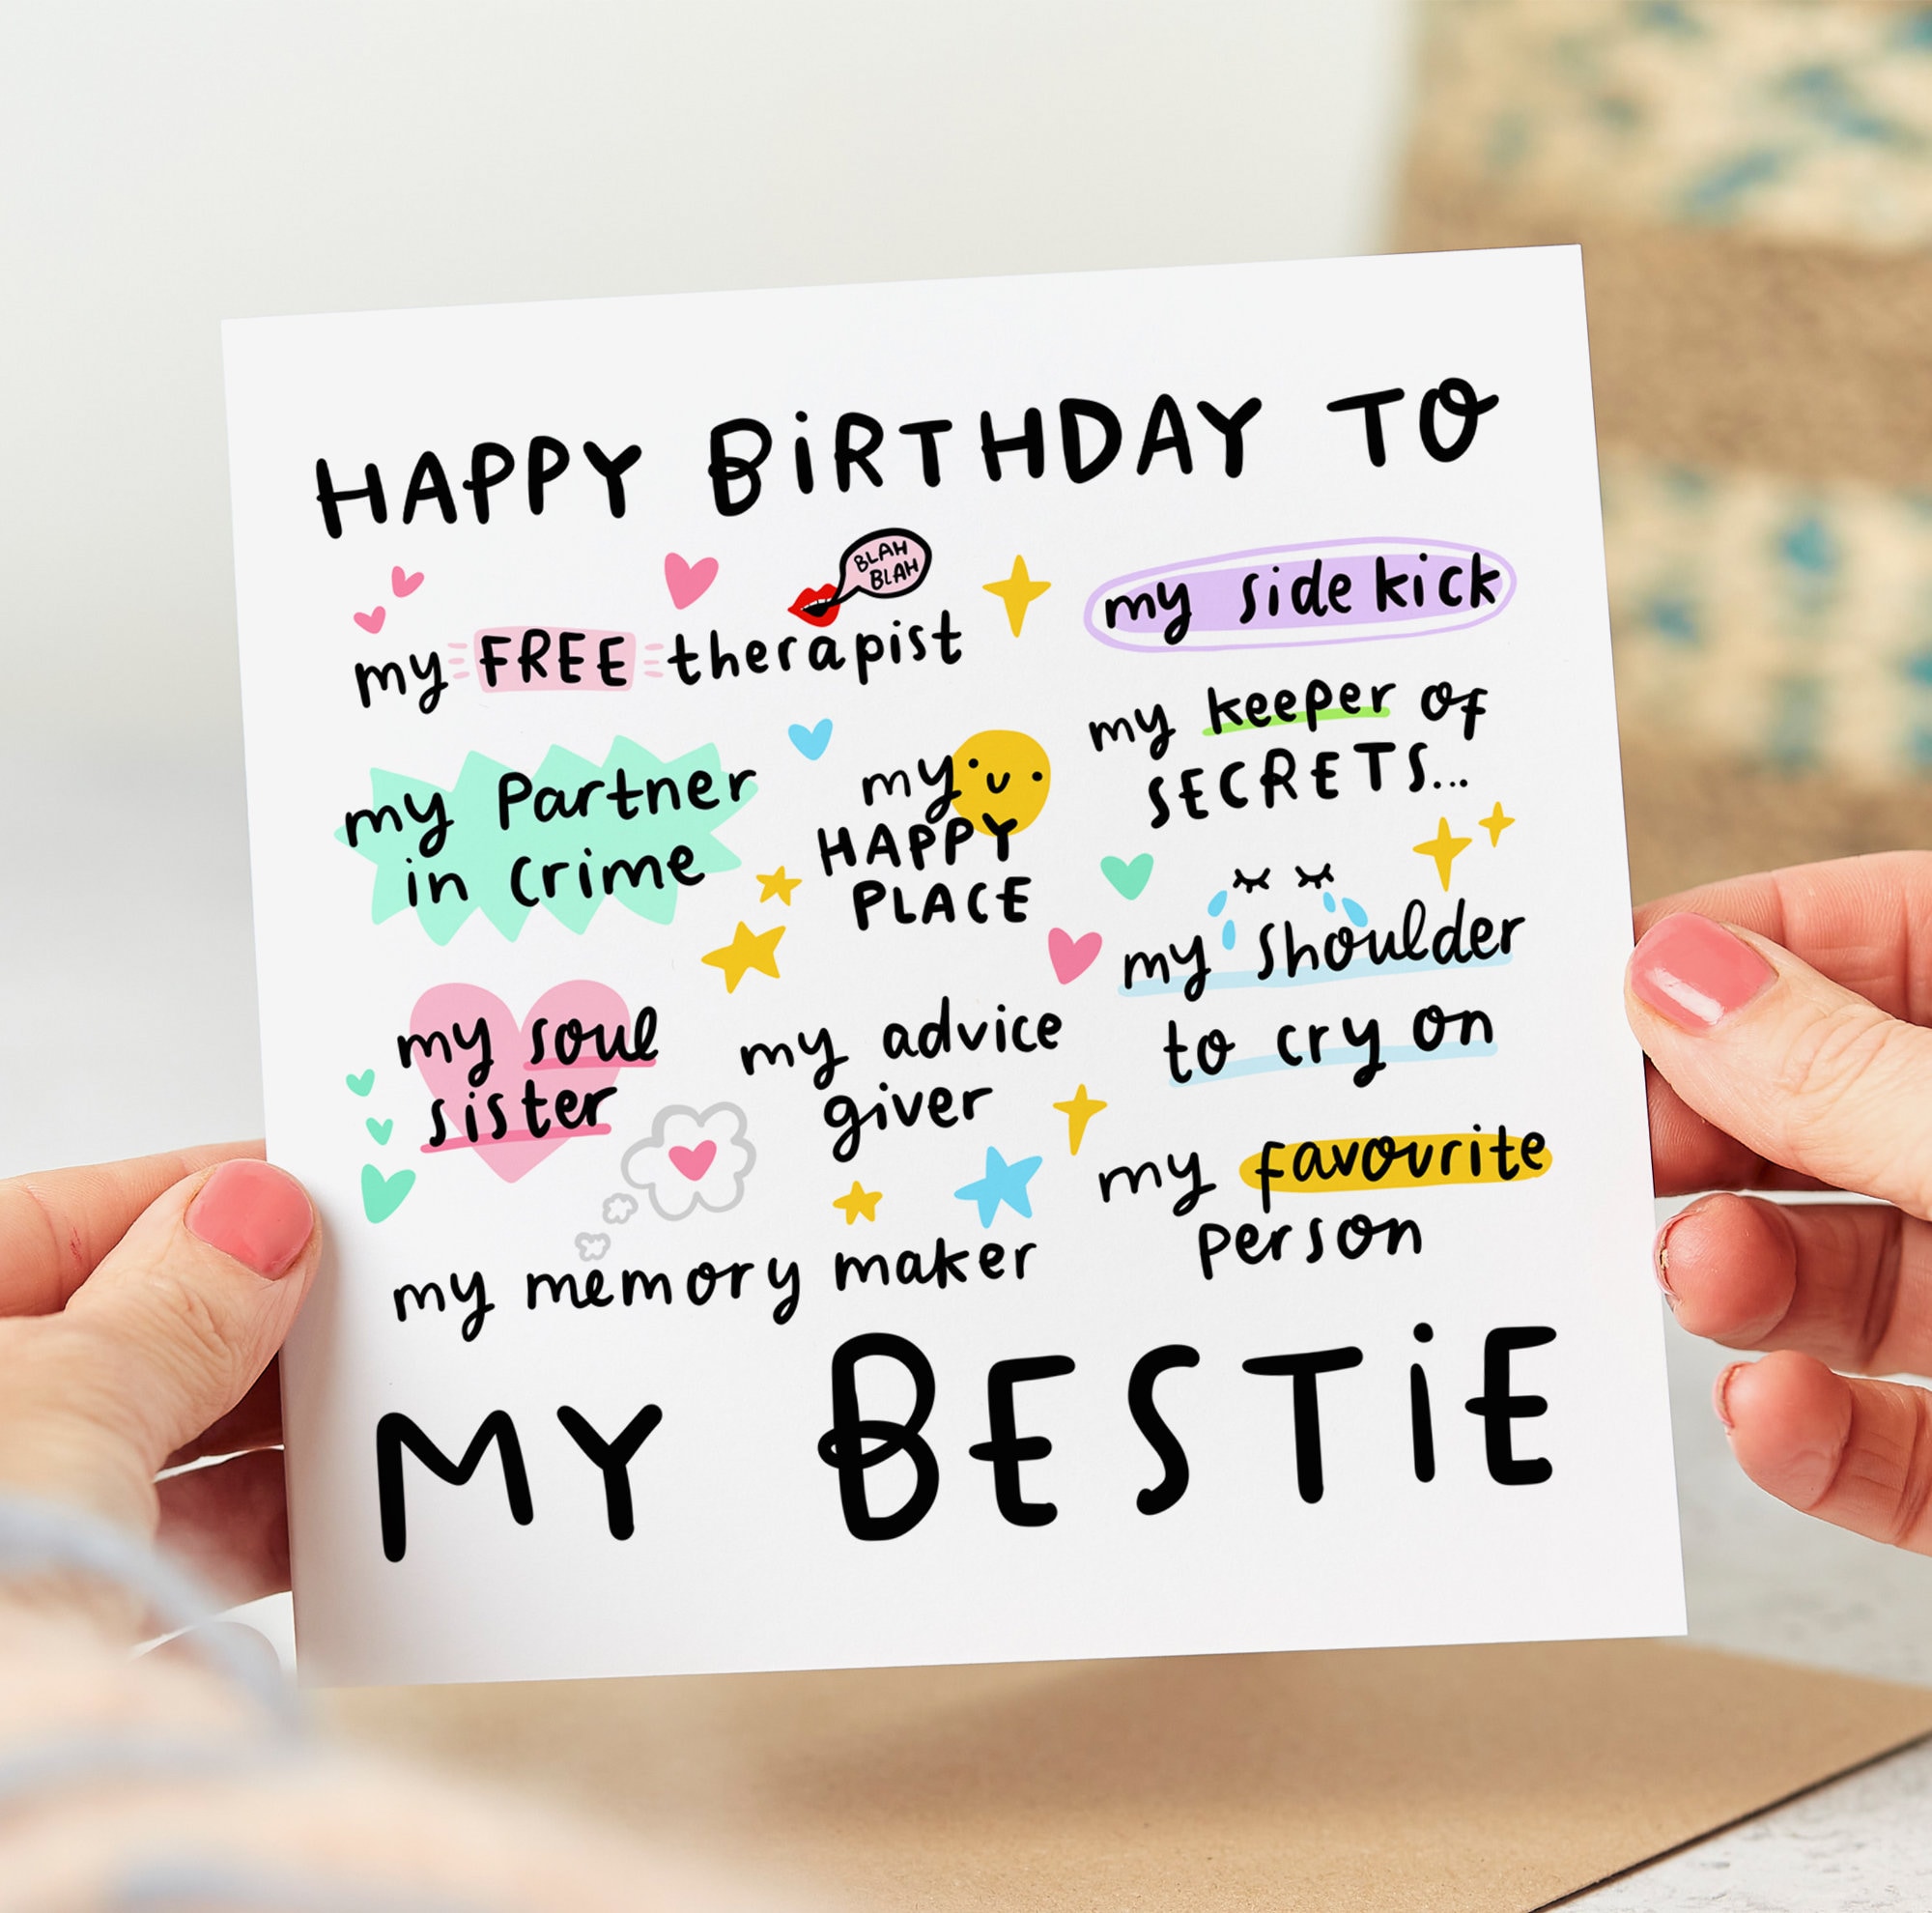 HAPPY BiRTHDAY TO
BLAH
BLAH
my FREE therapist
my side kick
my keeper of
SECRETS...
my Partner
in crime
my
HAPPY
PLACE
my shoulder
to cry on
my soul
sister
my advice
giver
my favourite
person
my memory maker
MY BESTiE